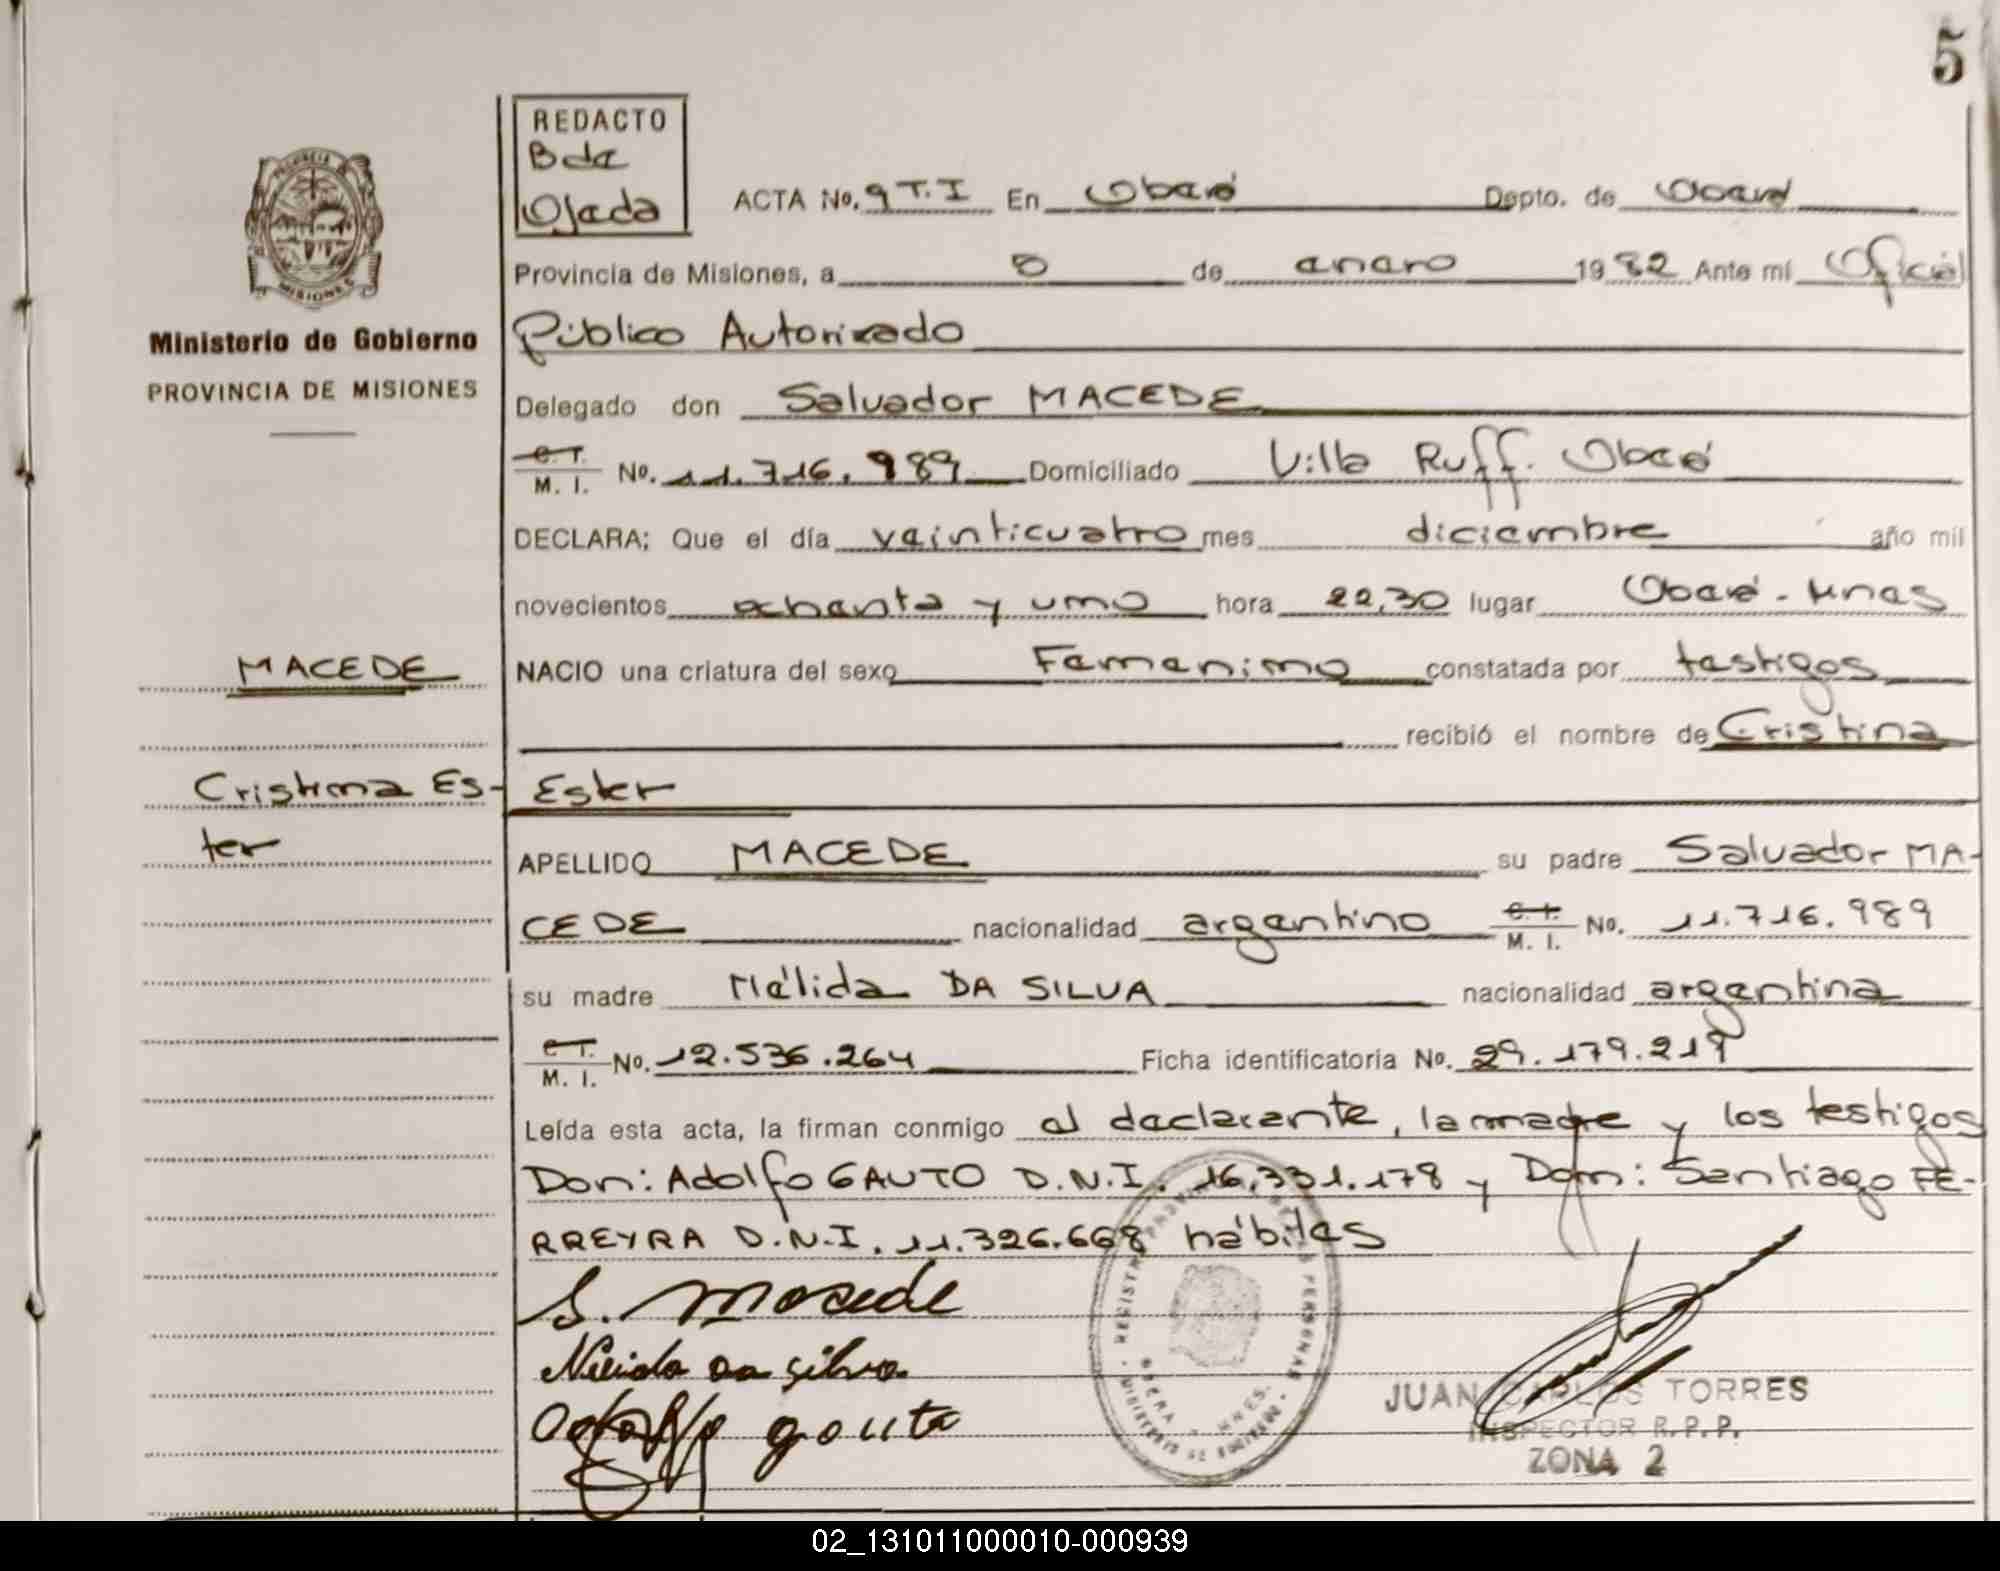 5
REDACTO
Bda
Ojeda
ACTA No. 9 T.I En Oberá Depto. de Oberá
Provincia de Misiones, a 8 de enero 1982 Ante mí Oficial
Público Autorizado
Delegado don Salvador MACEDE
C.I. M. I. No. 11.716.989 Domiciliado Villa Ruff. Oberá
DECLARA; Que el día veinticuatro mes diciembre año mil
novecientos ochenta y uno hora 22,30 lugar Oberá - Mnes
NACIO una criatura del sexo Femenino constatada por testigos
recibió el nombre de Cristina
Ester
APELLIDO MACEDE su padre Salvador MA-
CEDE nacionalidad argentino C.I. M. I. No. 11.716.989
su madre Nélida DA SILVA nacionalidad argentina
C.I. M. I. No. 12.536.264 Ficha identificatoria No. 29.179.219
Leída esta acta, la firman conmigo el declarante, la madre y los testigos
Don: Adolfo GAUTO D.N.I. 16.331.178 y Don: Santiago FE-
RREYRA D.N.I. 11.326.668 hábiles
PROVINCIA
MISIONES
Ministerio de Gobierno
PROVINCIA DE MISIONES
MACEDE
Cristina Es-
ter
S. Macede
Nelida da silva
Adolfo gauto
JUAN CARLOS TORRES
INSPECTOR R.P.P.
ZONA 2
02_131011000010-000939